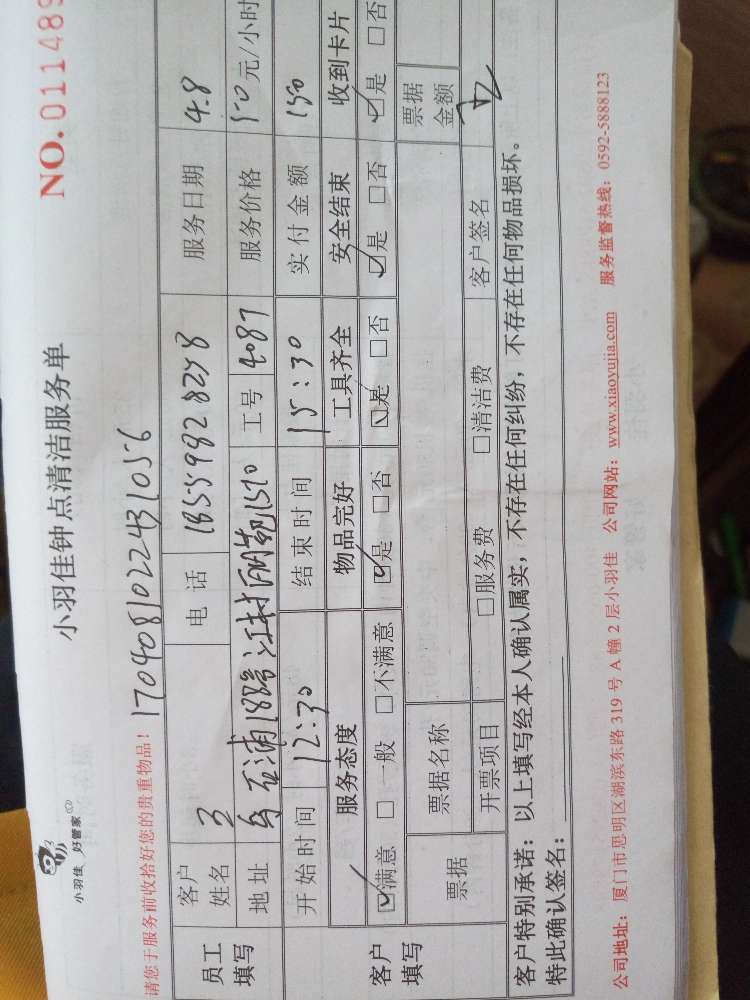 小羽佳 好管家
小羽佳钟点清洁服务单
NO.011489
请您于服务前收拾好您的贵重物品！ 170408102243 1056
员工填写
客户姓名 电话 18559828258 服务日期 4.8
地址 18 工号 4087 服务价格 150元/小时
开始时间 12:30 结束时间 15:30 实付金额 150
客户填写
服务态度 物品完好 工具齐全 安全结束 收到卡片
☑满意 □一般 □不满意 ☑是 □否 ☑是 □否 ☑是 □否 ☑是 □否
票据 票据名称 票据金额
开票项目 □服务费 □清洁费 客户签名
客户特别承诺：以上填写经本人确认属实，不存在任何纠纷，不存在任何物品损坏。
特此确认签名：
公司地址：厦门市思明区湖滨东路 319 号 A 幢 2 层小羽佳 公司网站：www.xiaoyujia.com 服务监督热线：0592-5888123